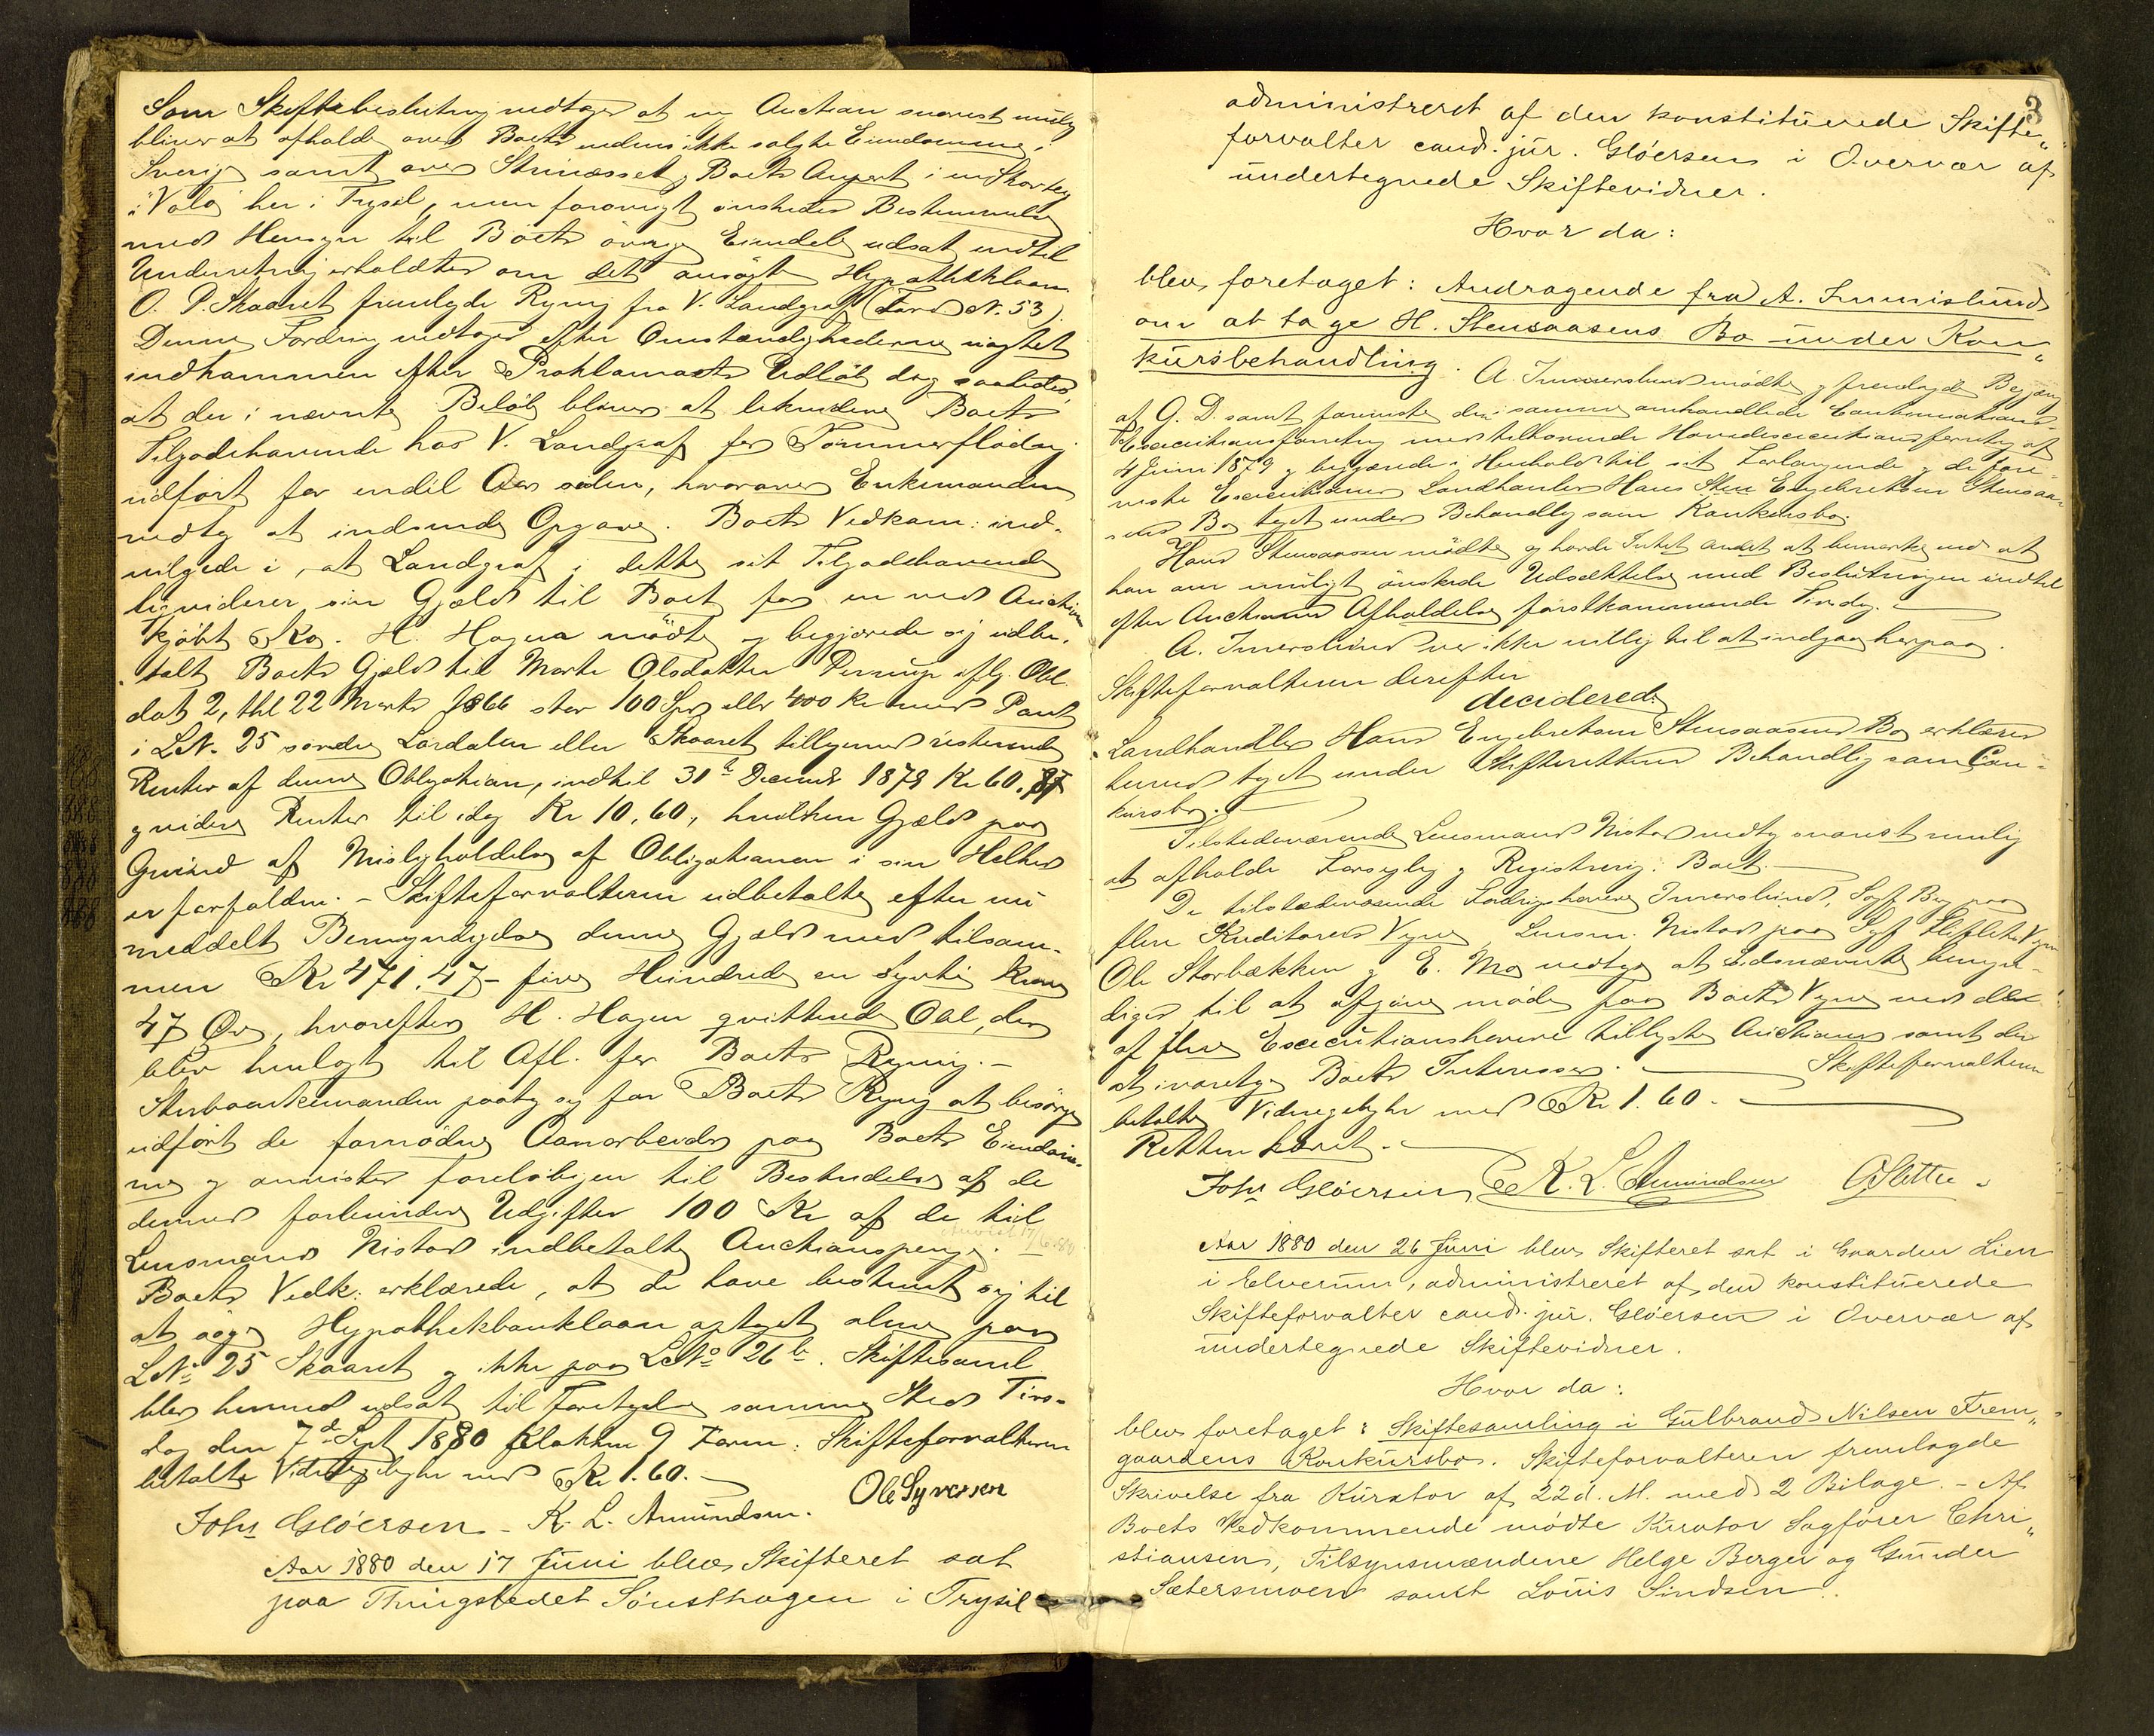 Som Skiftebeslutning vedtoges at ny Auction snarest mulig
bliver at afholde over Boets endnu ikke solgte Eiendomme i
Sverige samt over Strinæsset, Boets Anpart i en Skovteig
i Vola her i Trysil, men forøvrigt ønskedes Bestemmelse
med Hensyn til Boets øvrige Eiendele udsat indtil
Underretning erholdtes om det ansøgte Hypotheklaan
O. P. Skaaret fremlagde Regning fra V. Landgraff (Ford N. 53).
Denne Fordring vedtoges efter Omstændighederne uagtet
indkommen efter Proklamaets Udløb dog saaledes,
at der i nævnte Beløb bliver at likvidere Boets
Tilgodehavende hos V. Landgraf for Tømmerflødning
udført for endel Aar siden, hvorover Enkemanden
vedtog at indsende Opgave. Boets Vedkom: ind-
vilgede i, at Landgraf i dette sit Tilgodehavende
ligviderer sin Gjæld til Boet for en ved Auction
kjøbt Ko. H. Hagen mødte og begjærede sig udbe-
talt Boets Gjæld til Marte Olsdatter Pernup iflg. Obl.
dat 2, thl 22 Marts 1866 stor 100 Spd eller 400 Kr med Pant
i LN. 25 søndre Lørdalen eller Skaaret tilligemed resterende
Renter af denne Obligation, indtil 31te Decemb 1879 Kr 60.87
og videre Renter til idag Kr 10.60, hvilken Gjæld paa
Grund af Misligholdelse af Obligationen i sin Helhed
er forfalden. - Skifteforvalteren udbetalte efter nu
meddelt Bemyndigelse denne Gjæld med tilsam-
men Kr 471.47 - fire Hundrede en Sytti Kroner
47 Øre, hvorefter H. Hagen qvitterede Obl, der
blev henlagt til Afl. for Boets Regning. -
Sterbboenkemanden paatog sig for Boets Regng at besørge
udført de fornødne Aanarbeider paa Boets Eiendom-
me og anvistes foreløbigen til Bestridelse af de
dermed forbundne Udgifter 100 Kr af de til
Lensmand Nistad indbetalte Auctionspenge. Anvist 17/6 80
Boets Vedk: erklærede, at de have bestemt sig til
at søge Hypothekbanklaan optaget alene paa
LN: 25 Skaaret og ikke paa LNo 26b. Skiftesaml
blev hermed udsat til Foretagelse samme Sted Tirs-
dag den 7de Sept 1880 Klokken 9 Form: Skifteforvalteren
betalte Vidnegebyhr med Kr 1.60. -
Johs Gløersen - K. L. Amundsen. Ole Syversen
Aar 1880 den 17 Juni blev Skifteret sat
paa Thingstedet Sønsthagen i Trysil
3
administreret af den konstituerede Skifte„
forvalter cand. jur. Gløersen i Overvær af
undertegnede Skiftevidner.
Hvor da:
blev foretaget: Andragende fra A. Immislund
om at tage H. Stensaasens Bo under Kon„
kursbehandling. A. Immerslund mødte og fremlagde Begjæring
af G. D. samt foreviste den i samme omhandlede
Executionsforretning med tilhørende Hovedexecutionsforretng af
4 Juni 1879 og begjærede i Henhold til sit Forlangende og de fore-
viste Executioner Landhandler Hans Engebretsen Stensaa-
sens Bo taget under Behandlg som Konkursbo.
Hans Stensaasen mødte og havde Intet andet at bemærke end at
han om muligt ønskede Udsættelse med Beslutningen indtil
efter Auctionens Afholdelse førstkommende Tirsdag.
A. Imerslund var ikke villig til at indgaa herpaa.
Skifteforvalteren derefter
deciderede
Landhandler Hans Engebretsen Stensaasens Bo erklæres
herved taget under Skifterettens Behandling som Con-
kursbo.
Tilstedeværende Lensmand Nistad vedtog snarest mulig
at afholde Forsegling og Registrering i Boet.
De tilstedeværende Fordringshavere Imerslund, Sagf. Berg paa
flere Kreditorers Vegne, Lensm. Nistad paa Sagf Vegne
Ole Storbækken og E. Mo vedtog at Sidsnævnte bemyn-
diges til at afgive møde paa Boets Vegne ved de
af flere Executionshavere tillyste Auctioner samt der
at ivaretage Boets Interesser. Skifteforvalteren
betalte Vidnegebyhr med Kr 1.60.
Retten hævet.
Johs Gløersen K. L. Amundsen
Aar 1880 den 26 Juni blev Skifteret sat i Gaarden Lien
i Elverum, administreret af den konstituerede
Skifteforvalter cand. jur. Gløersen i Overvær af
undertegnede Skiftevidner.
Hvor da:
blev foretaget: Skiftesamling i Gulbrand Nilsen Frem„
gaardens Konkursbo. Skifteforvalteren fremlagde
Skrivelse fra Kurator af 22 d. M. med 2 Bilage. - Af
Boets Vedkommende mødte Kurator Sagfører Chri„
stiansen, Tilsynsmændene Helge Berger og Gunder
Sætersmoen samt Louis Sindsen.